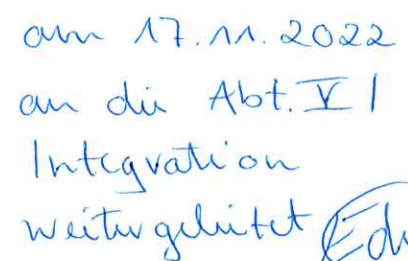 am 17.11.2022
an die Abt. VI
Integration
weitergeleitet